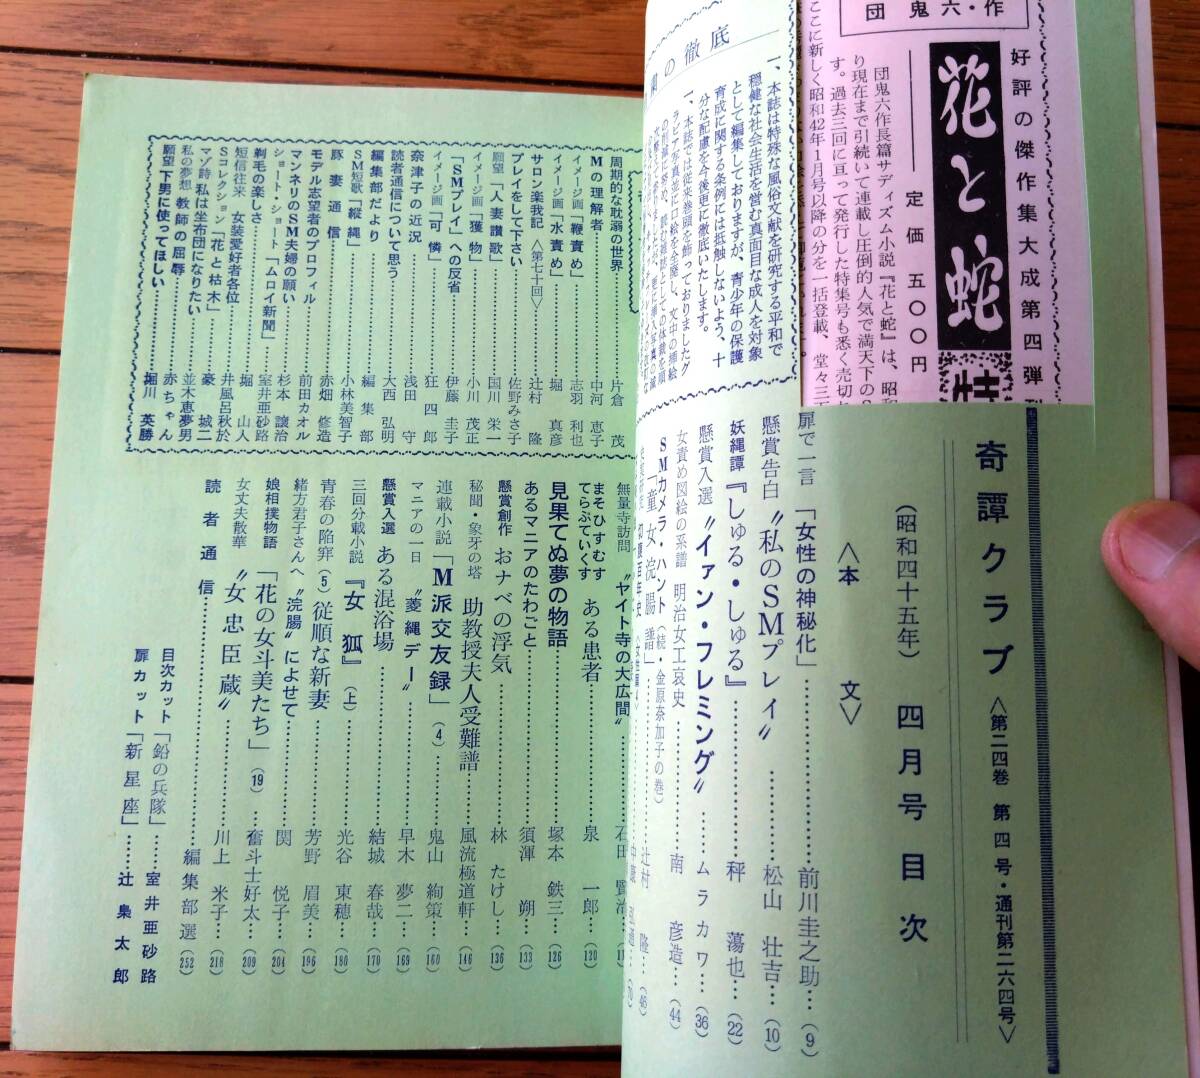 団鬼六・作
好評の傑作集大成第四弾
花と蛇
定価 五〇〇円
団鬼六作長篇サディズム小説『花と蛇』は、昭
り現在まで引続いて連載し圧倒的人気で満天下の
す。過去三回に亘って発行した特集号も悉く売切
ここに新しく昭和42年1月号以降の分を一括登載、堂々三
の徹底
一、本誌は特殊な風俗文献を研究する平和で
穏健な社会生活を営む真面目な成人を対象
として編集しておりますが、青少年の保護
育成に関する条例には抵触しないよう、十
分な配慮を今後更に徹底いたします。
一、本誌では従来巻頭を飾っておりましたグ
ラビア写真並に口絵を全廃し、文中の挿絵
奇譚クラブ 〈第二四巻 第四号・通刊第二六四号〉
(昭和四十五年) 四月号目次
〈本 文〉
扉で一言 「女性の神秘化」 前川圭之助 (9)
懸賞告白 〝私のSMプレイ〟 松山 壮吉 (10)
妖縄譚 『しゅる・しゅる』 秤 蕩也 (22)
懸賞入選 〝イァン・フレミング〟 ムラカワ (36)
女責め図絵の系譜 明治女工哀史 南 彦造 (44)
SMカメラ・ハント (続・金原奈加子の巻)
「童女浣腸譜」 辻村 隆 (46)
無量寺訪問 〝ヤイト寺の大広間〟 石田
まそひすむす てらぶていくす ある患者 泉 一郎 (120)
見果てぬ夢の物語 塚本 鉄三 (126)
あるマニアのたわごと 須渾 朔 (133)
懸賞創作 おナベの浮気 林 たけし (136)
秘聞・象牙の塔 助教授夫人受難譜 風流極道軒 (146)
連載小説 「M派交友録」 (4) 鬼山 絢策 (160)
マニアの一日 〝菱縄デー〟 早木 夢二 (169)
懸賞入選 ある混浴場 結城 春哉 (170)
三回分載小説 『女狐』 (上) 光谷 東穂 (180)
青春の陥穽 (5) 従順な新妻 芳野 眉美 (196)
緒方君子さんへ 〝浣腸〟によせて 関 悦子 (204)
娘相撲物語 「花の女斗美たち」 (19) 奮斗士好太 (209)
女丈夫散華 〝女忠臣蔵〟 川上 米子 (218)
読者通信 編集部選 (252)
目次カット 「鉛の兵隊」 室井亜砂路
扉カット 「新星座」 辻 梟太郎
周期的な耽溺の世界 片倉 茂
Mの理解者 中河 恵子
イメージ画 「鞭責め」 志羽 利也
イメージ画 「水責め」 堀 真彦
サロン楽我記 〈第七十回〉 辻村 隆
プレイをして下さい 佐野みさ子
願望 「人妻讃歌」 国川 栄一
イメージ画 「獲物」 小川 茂正
「SMプレイ」への反省 伊藤 圭子
イメージ画 「可憐」 狂 四郎
奈津子の近況 浅田 守
読者通信について思う 大西 弘明
編集部だより 編集部
SM短歌 「縦縄」 小林美智子
豚妻通信 赤畑 修造
モデル志望者のプロフィル 前田カオル
マンネリのSM夫婦の願い 杉本 譲治
ショート・ショート 「ムロイ新聞」 室井亜砂路
剃毛の楽しさ 堀 山人
短信往来 女装愛好者各位 井風呂秋於
Sコレクション 「花と枯木」 豪 城二
マゾ詩 私は坐布団になりたい 並木恵夢男
私の夢想 教師の屈辱 赤ちゃん
願望 下男に使ってほしい 堀川 英勝